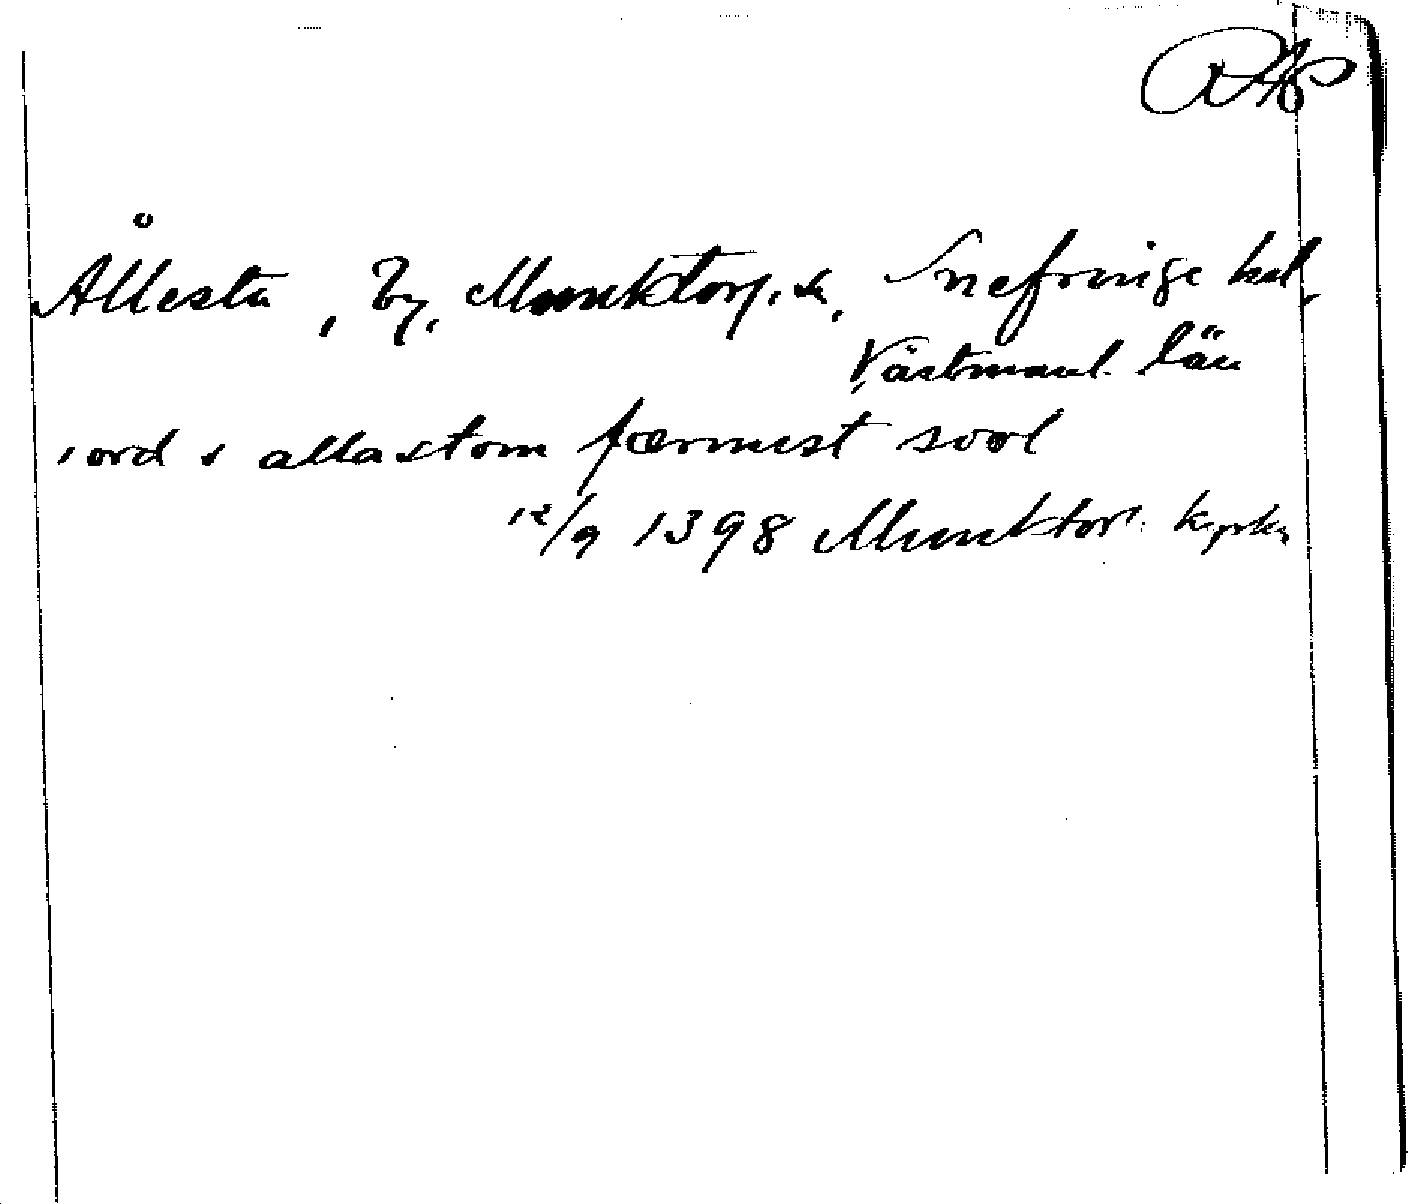 RAP
Ållesta, By, Munktorp. sn, Snefringe hd,
Västmanl. län
iord i allastom færmest sool
12/9 1398 Munktorp kyrka